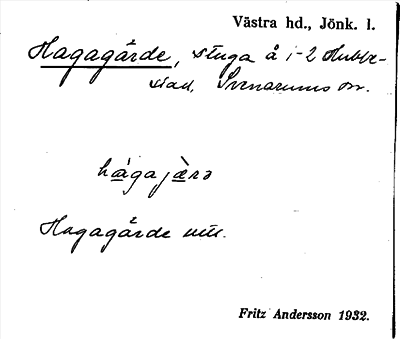 Västra hd., Jönk. l.
Hagagärde, stuga å 1-2 Hubbe-
stad, Svenarums sn.
hàgajæ̀rə
Hagagärde
Fritz Andersson 1932.